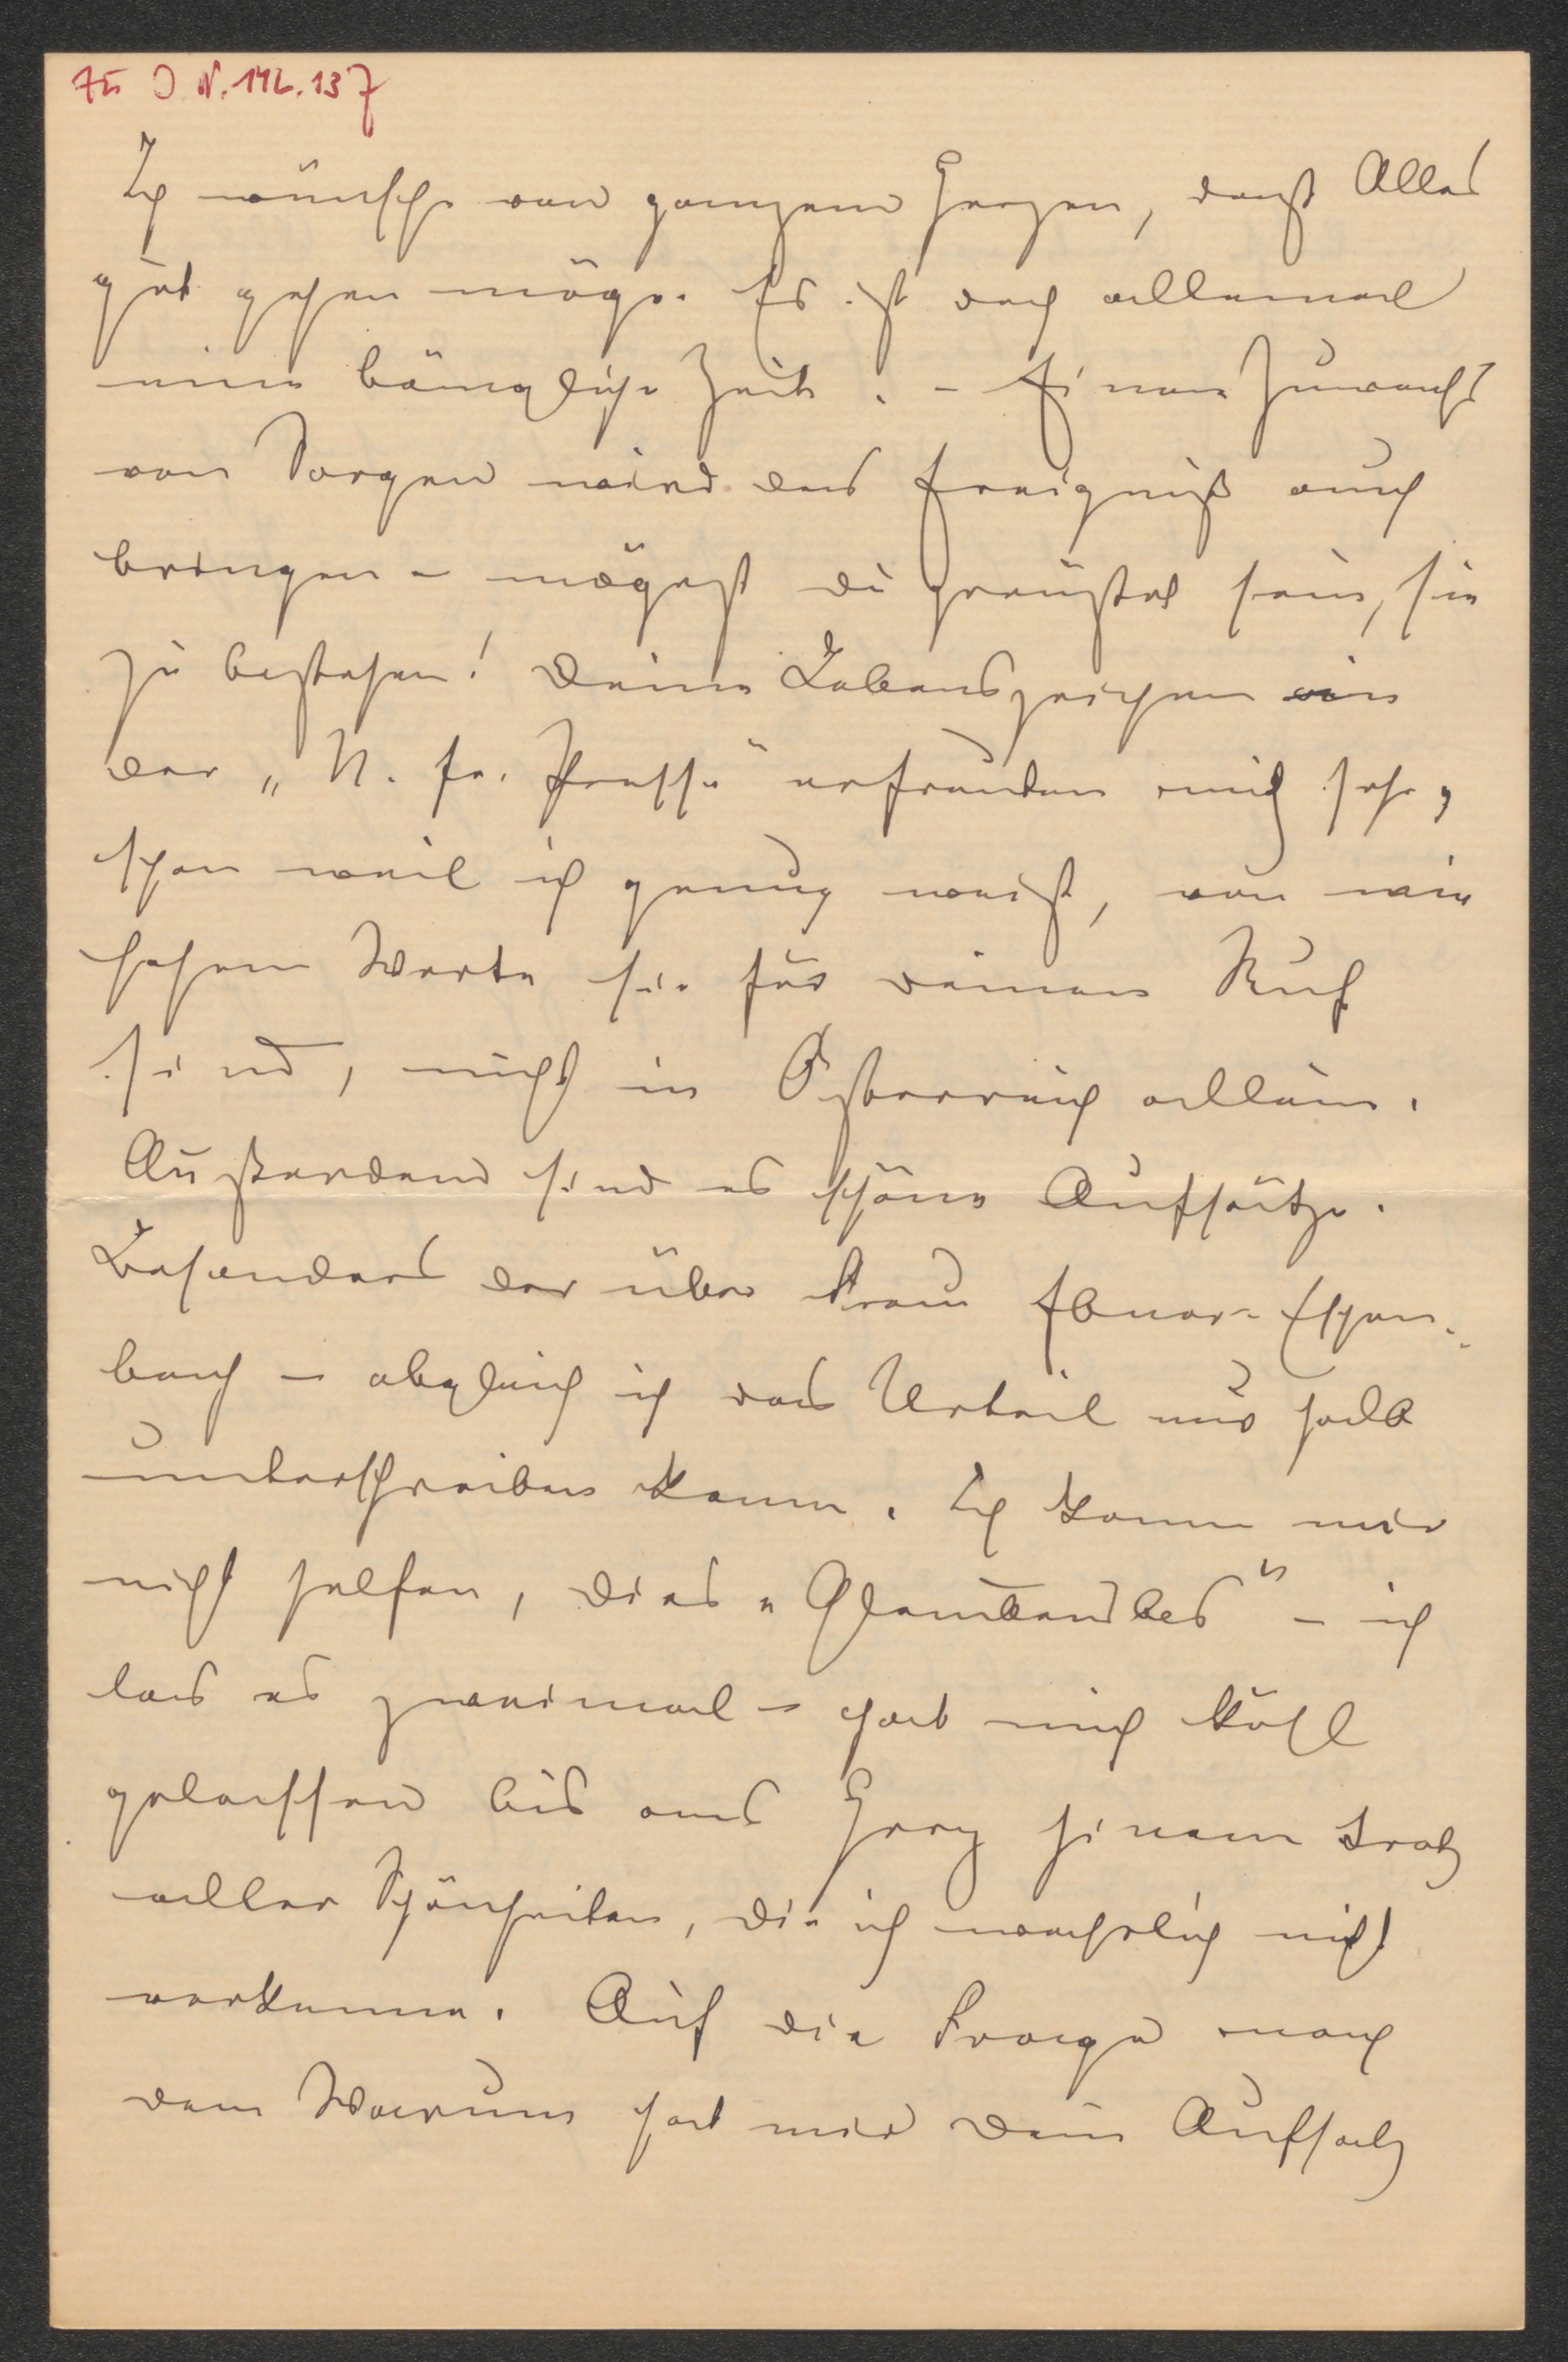 Zu I. N. 142.137
Ich wünsche von ganzem Herzen, daß Alles
gut gehen möge. Es ist doch allemal
eine bängliche Zeit. – Einen Zuwachs
von Sorgen wird das Ereigniß auch
bringen – mögest du gerüstet sein, sie
zu bestehen! Deine Lebenszeichen in
der „N. fr. Presse" erfreuten mich sehr,
schon weil ich genug weiß, von wie
hohem Werte sie für deinen Ruf
sind, nicht in Österreich allein.
Außerdem sind es schöne Aufsätze.
Besonders der über Frau Ebner-Eschen-
bach – obgleich ich das Urteil nur halb
unterschreiben kann. Ich kann mir
nicht helfen, dies „Glaubenslos" – ich
las es zweimal – hat mich kühl
gelassen bis ans Herz hinan trotz
aller Schönheiten, die ich wahrlich nicht
verkenne. Auf die Frage nach
dem Warum hat mir dein Aufsatz